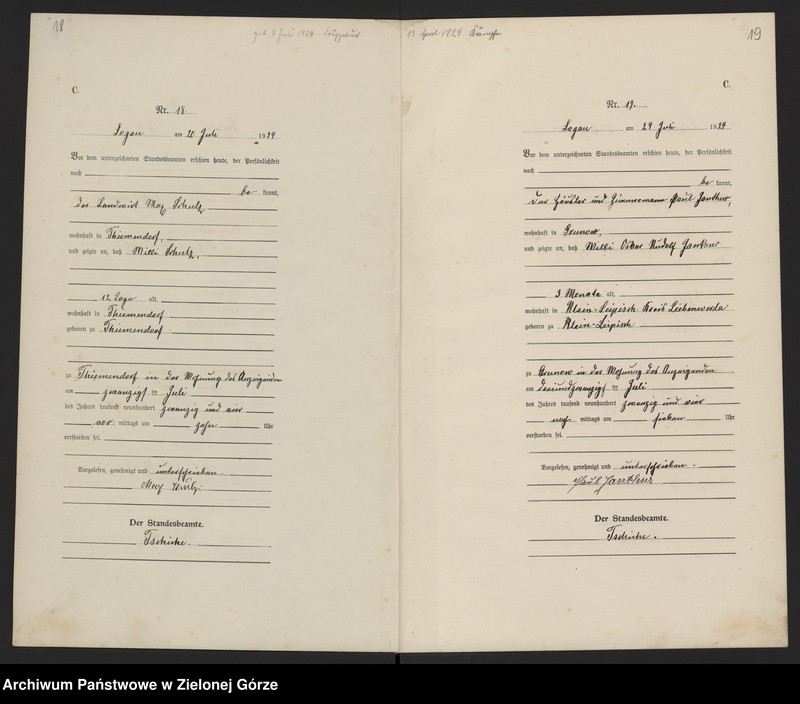 18
geb 8 Juli 1924
C.
Nr. 18.
Logau am 21 Juli 1924
Vor dem unterzeichneten Standesbeamten erschien heute, der Persönlichkeit
nach
be kannt,
der Landwirt Max Schulz,
wohnhaft in Thiemendorf,
und zeigte an, daß Willi Schulz,
12 Tage alt,
wohnhaft in Thiemendorf
geboren zu Thiemendorf
zu Thiemendorf in der Wohnung des Anzeigenden
am zwanzigst en Juli
des Jahres tausend neunhundert zwanzig und vier
vor mittags um zehn Uhr
verstorben sei.
Vorgelesen, genehmigt und unterschrieben.
Max Schulz.
Der Standesbeamte.
Tschiche.
19
13 April 1924
C.
Nr. 19.
Logau am 24 Juli 1924
Vor dem unterzeichneten Standesbeamten erschien heute, der Persönlichkeit
nach
be kannt,
der Häusler und Zimmermann Paul Janthur,
wohnhaft in Grunow,
und zeigte an, daß Willi Oskar Rudolf Janthur
3 Monate alt,
wohnhaft in Klein-Leipisch Kreis Liebenwerda
geboren zu Klein-Leipisch
zu Grunow in der Wohnung des Anzeigenden
am dreiundzwanzigst en Juli
des Jahres tausend neunhundert zwanzig und vier
nach mittags um sieben Uhr
verstorben sei.
Vorgelesen, genehmigt und unterschrieben.
Paul Janthur
Der Standesbeamte.
Tschiche.
Archiwum Państwowe w Zielonej Górze